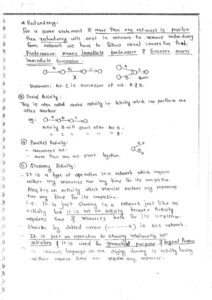 * Redundancy:-
For a given statement if more than one network is possible
then redundancy will exist in network to remove redundancy
from network we have to follow
Predecessor means immediate predecessor & successor means
immediate successor.
Act. C is successor of act. A & B.
Serial Activity:-
This is also called serial activity in activity which can perform one
after another
eg.
Activity B will start after Act. A.
Parallel Activity:-
- Concurrent act.
- more than one act. start together.
Dummy Activity:-
- It is a type of operation in a network which require
neither any resources nor any time for its completion.
Also, it is an activity which require neither any resources
nor any time for its completion.
- i.e. It is just showing in a network just like an
activity but it is not an activity because activity
requires time & resources both for its completion.
Shown by dotted arrow (------>) in a network.
- It is just an activity to showing relationship bet.
activities & it is used for grammatical purpose & logical purpose
- In general language we are saying dummy is activity being
neither require time nor require any resources.